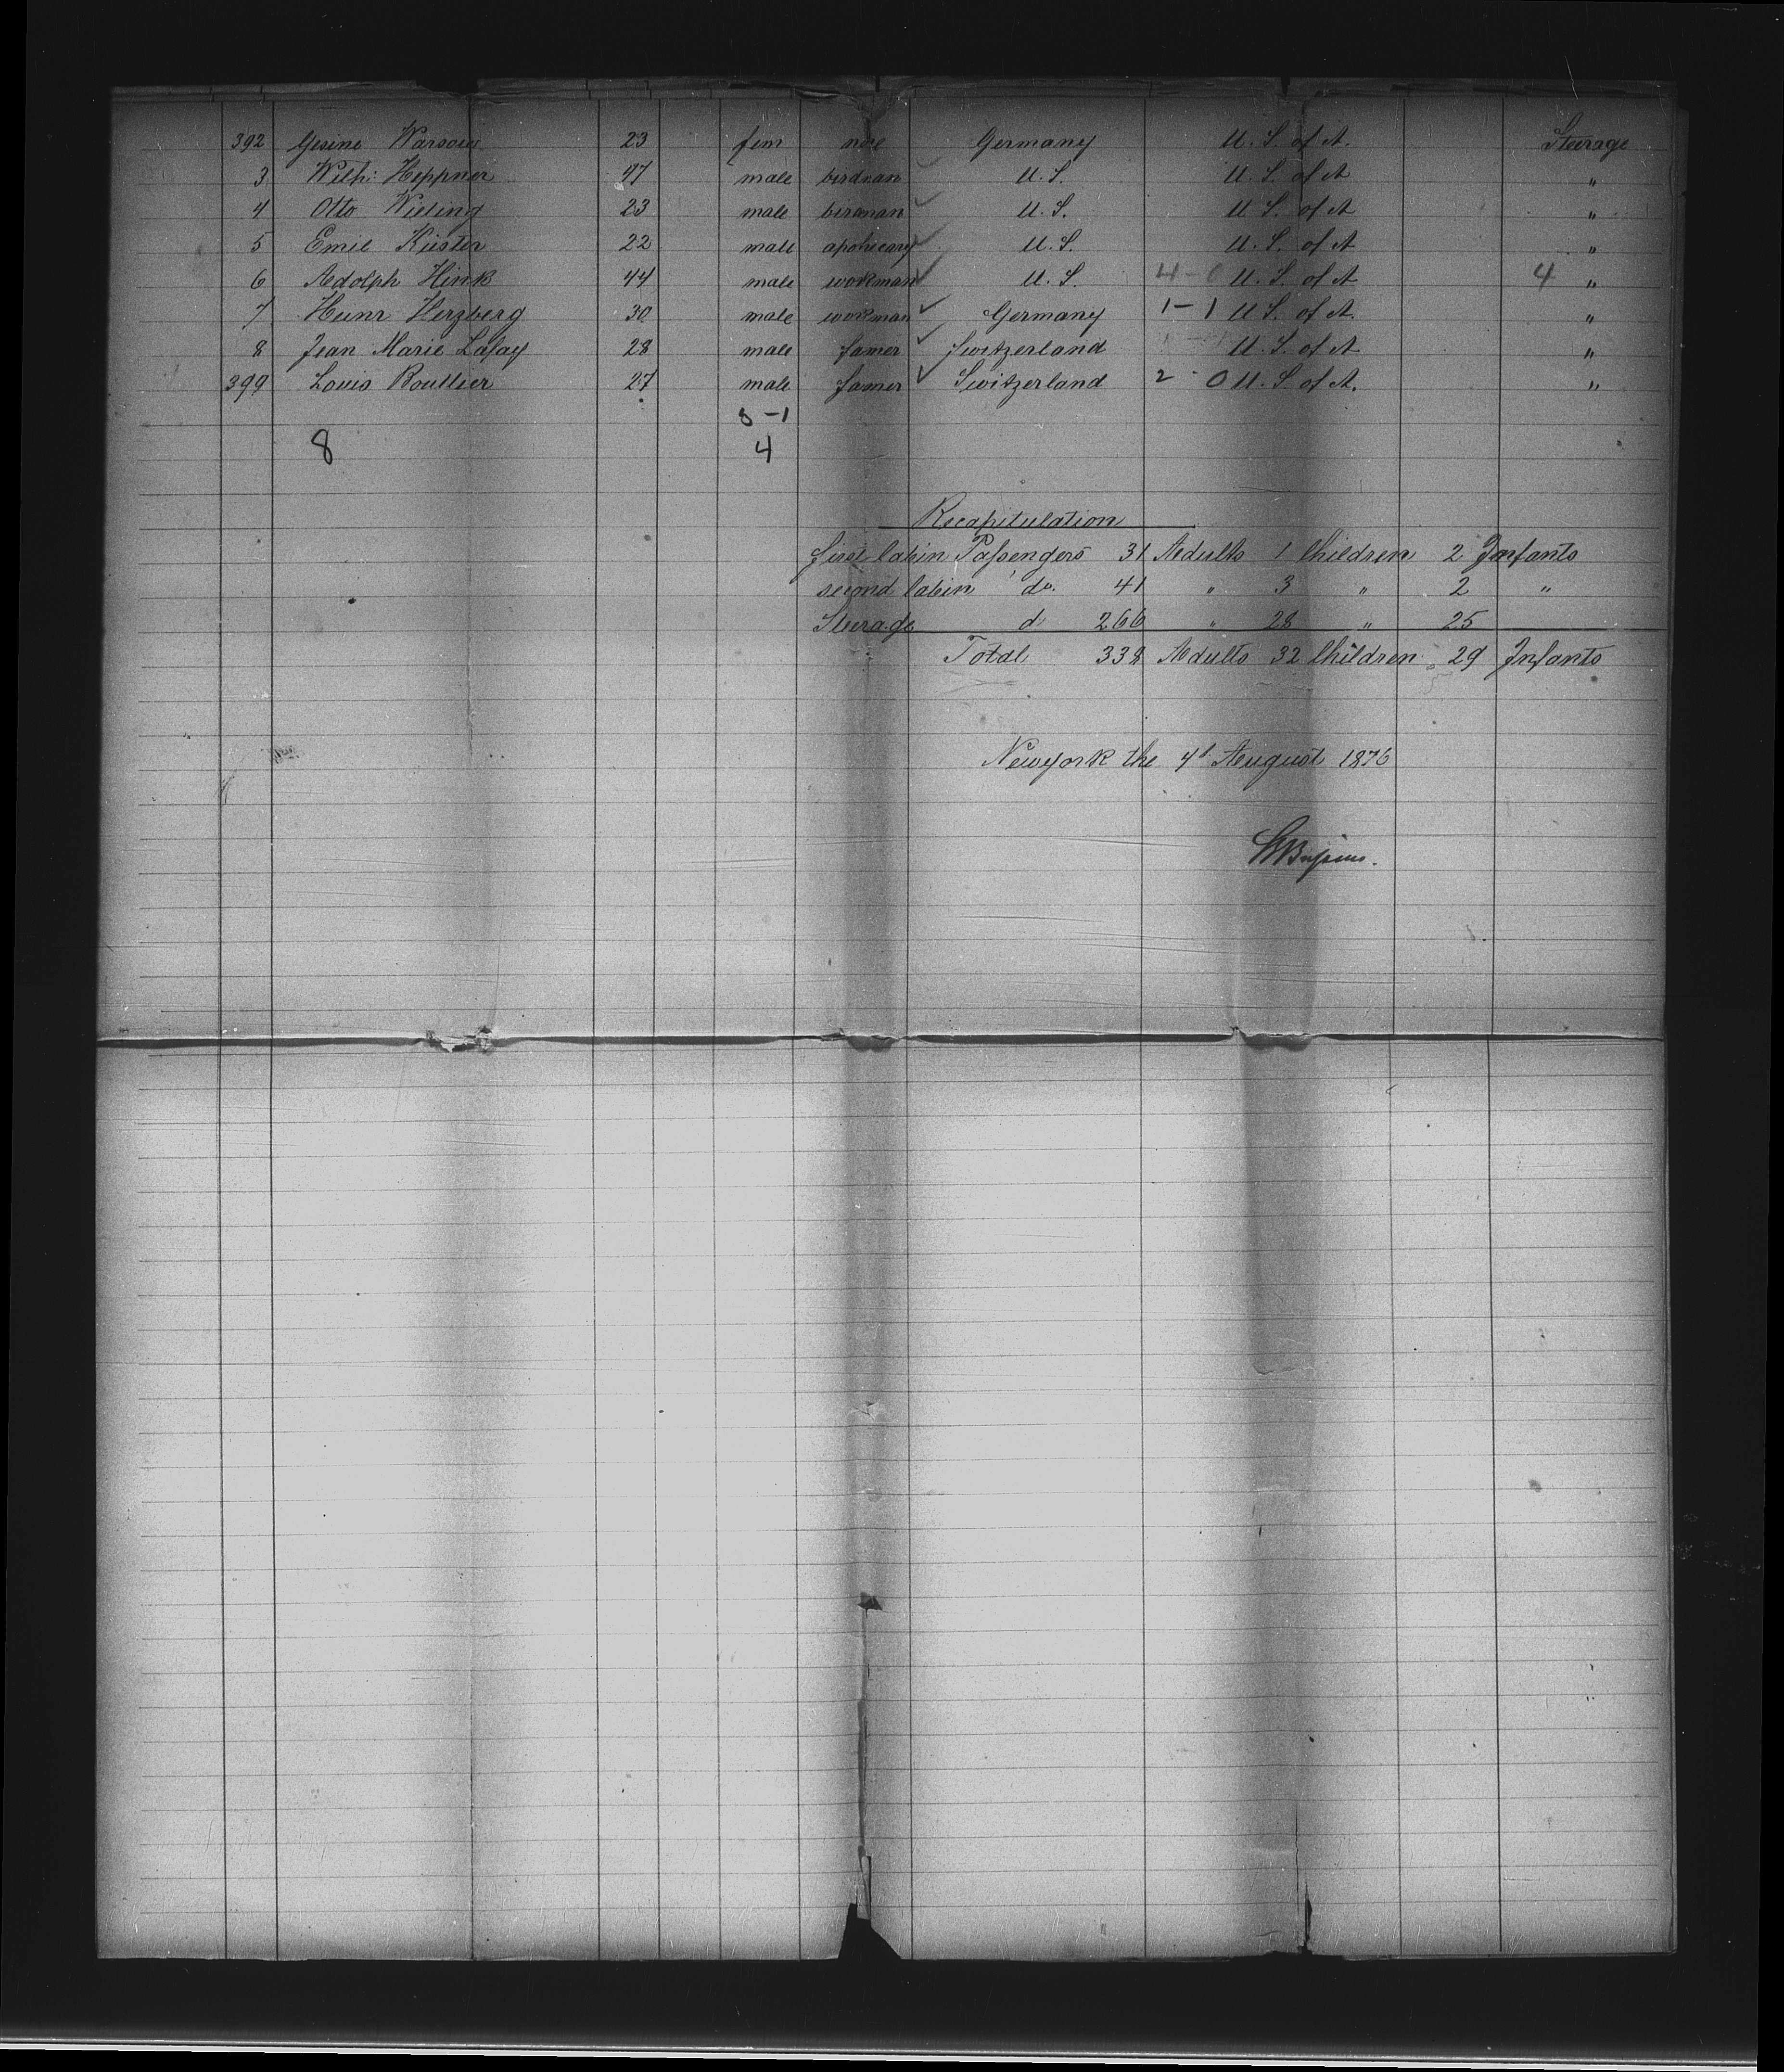 392 Gesine Warsow 23 fem noe Germany U. S. of A. Steerage
3 Wilh: Heppner 47 male birdman U. S. U. S. of A "
4 Otto Wieting 23 male birdman U. S. U S. of A "
5 Emil Küster 22 male apothecary U. S. U. S. of A "
6 Aedolph Hink 44 male workman U. S. 4 - 0 U. S. of A 4 "
7 Heinr Herzberg 30 male workman Germany 1 - 1 U S. of A. "
8 Jean Marie Lafay 28 male famer Switzerland U. S. of A "
399 Louis Boullier 27 male famer Switzerland 2 - 0 U. S of A. "
- 1
8 4
Recapitulation
first Cabin Passengers 31 Aedults 1 Children 2 Infants
second Cabin do. 41 " 3 " 2 "
Steerage d 266 " 28 " 25
Total 338 Aedults 32 Children 29 Infants
Newyork the August 1876